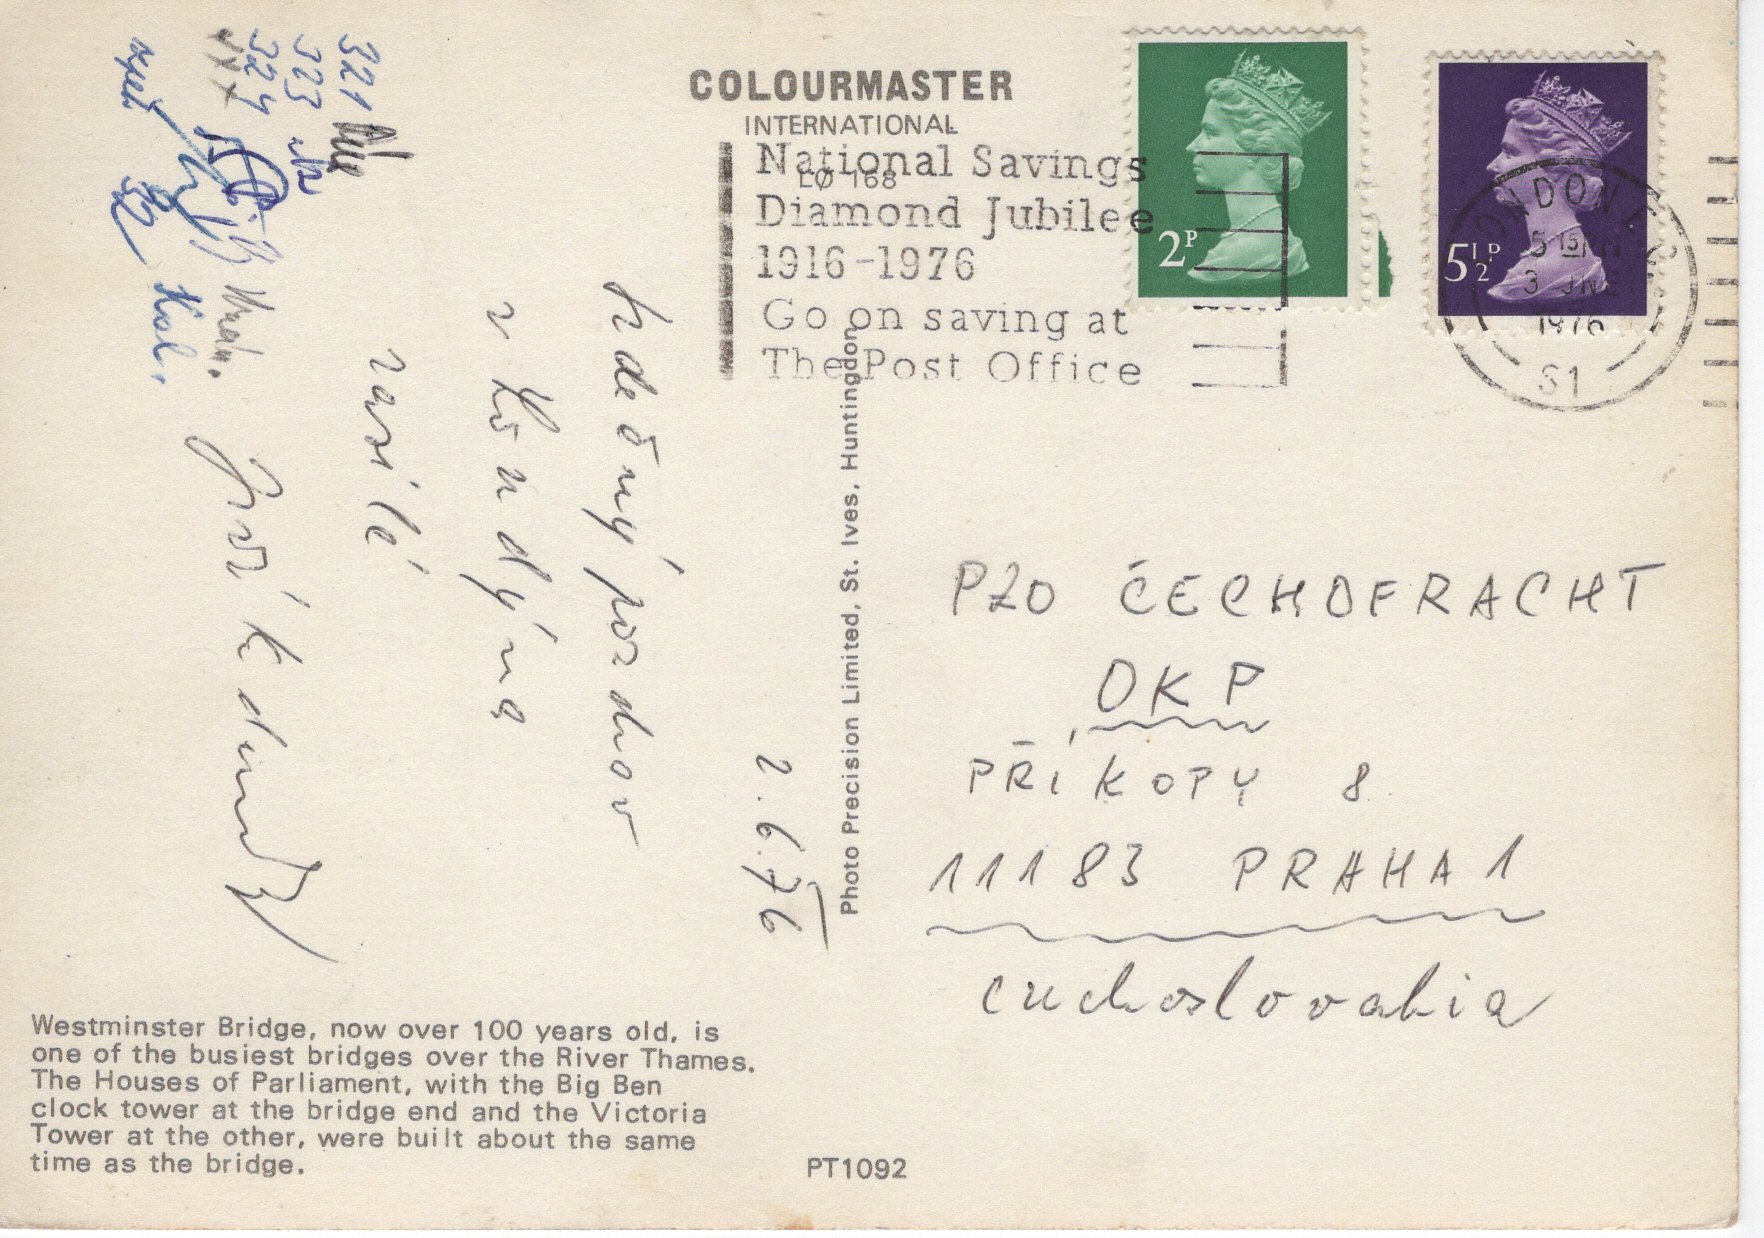 COLOURMASTER
INTERNATIONAL
LØ 168
National Savings
Diamond Jubilee
1916-1976
Go on saving at
The Post Office
2P
5½P
LONDON E2
5 15 PM
3 JNE
1976
S1
321
323
324
2.6.76
Srdečný pozdrav
z Londýna
zasílá
Photo Precision Limited, St. Ives, Huntingdon
PZO ČECHOFRACHT
OKP
PŘÍKOPY 8
11183 PRAHA 1
Westminster Bridge, now over 100 years old, is
one of the busiest bridges over the River Thames.
The Houses of Parliament, with the Big Ben
clock tower at the bridge end and the Victoria
Tower at the other, were built about the same
time as the bridge.
PT1092